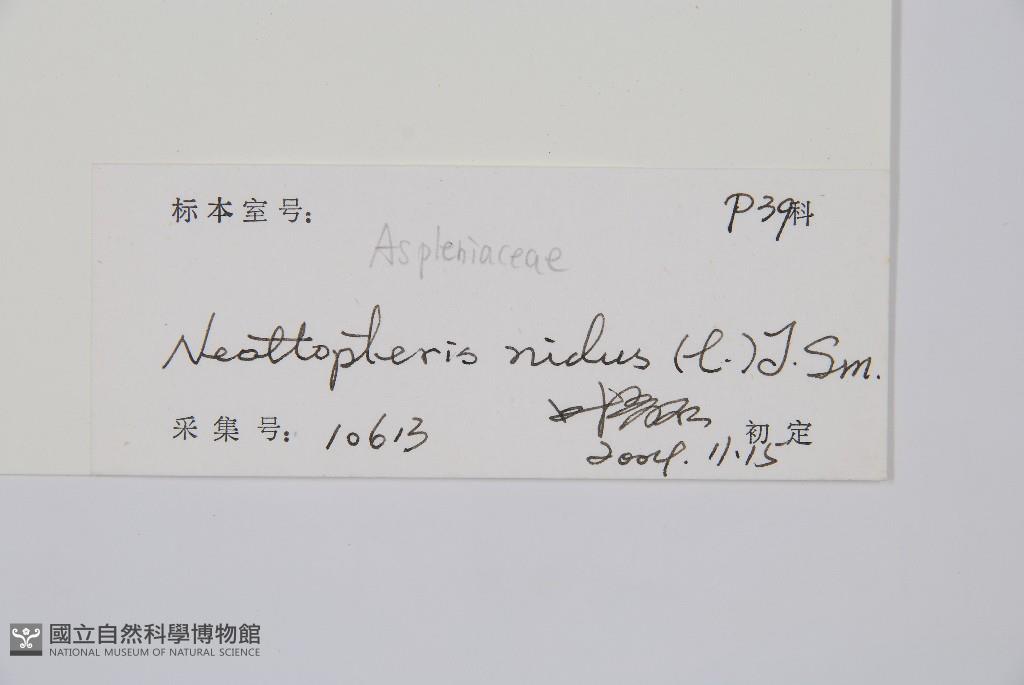 标本室号:
P39科
Aspleniaceae
Neottopteris nidus (L.) J. Sm.
采集号: 10613
初定
2004.11.15
國立自然科學博物館
NATIONAL MUSEUM OF NATURAL SCIENCE